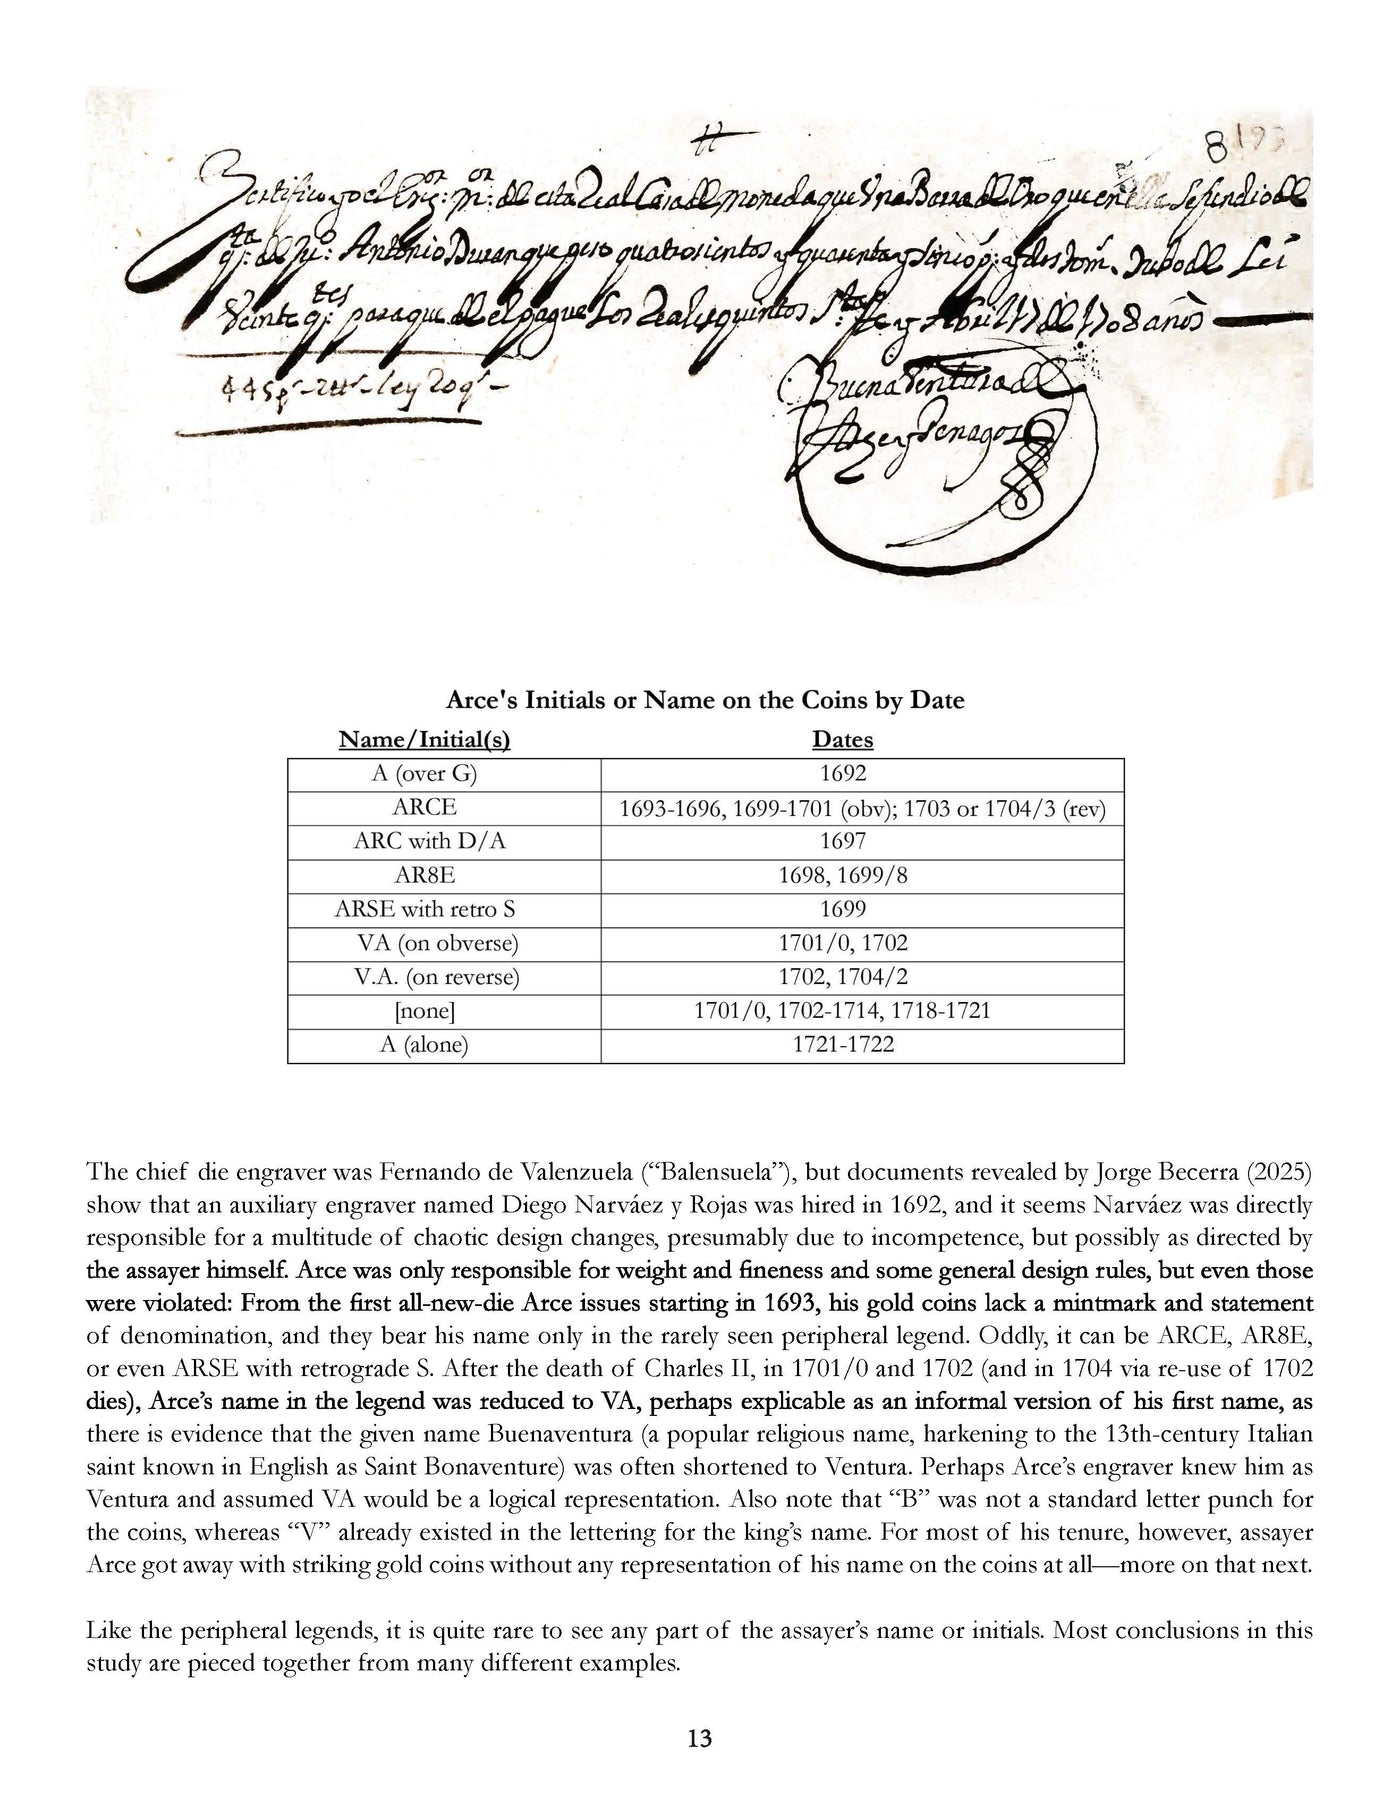 8 193
Zertifico yo el Ens:or m:or de esta Real Casa de Moneda que Una Barra de Oro que en Se fundio de
q:ta de Ju:o Antonio Duran que peso quatrosientos y quarenta y sinco p:s y dos tom:s tubo de Lei
Veinte q:tes para que de el pague Los Reales quintos S:ta fe y Abril 17 de 1708 años
445 ps - 2 tts - ley 20 qs -
Buena Ventura de
Arze y Penagos
Arce's Initials or Name on the Coins by Date
Name/Initial(s) Dates
A (over G) 1692
ARCE 1693-1696, 1699-1701 (obv); 1703 or 1704/3 (rev)
ARC with D/A 1697
AR8E 1698, 1699/8
ARSE with retro S 1699
VA (on obverse) 1701/0, 1702
V.A. (on reverse) 1702, 1704/2
[none] 1701/0, 1702-1714, 1718-1721
A (alone) 1721-1722
The chief die engraver was Fernando de Valenzuela (“Balensuela”), but documents revealed by Jorge Becerra (2025)
show that an auxiliary engraver named Diego Narváez y Rojas was hired in 1692, and it seems Narváez was directly
responsible for a multitude of chaotic design changes, presumably due to incompetence, but possibly as directed by
the assayer himself. Arce was only responsible for weight and fineness and some general design rules, but even those
were violated: From the first all-new-die Arce issues starting in 1693, his gold coins lack a mintmark and statement
of denomination, and they bear his name only in the rarely seen peripheral legend. Oddly, it can be ARCE, AR8E,
or even ARSE with retrograde S. After the death of Charles II, in 1701/0 and 1702 (and in 1704 via re-use of 1702
dies), Arce’s name in the legend was reduced to VA, perhaps explicable as an informal version of his first name, as
there is evidence that the given name Buenaventura (a popular religious name, harkening to the 13th-century Italian
saint known in English as Saint Bonaventure) was often shortened to Ventura. Perhaps Arce’s engraver knew him as
Ventura and assumed VA would be a logical representation. Also note that “B” was not a standard letter punch for
the coins, whereas “V” already existed in the lettering for the king’s name. For most of his tenure, however, assayer
Arce got away with striking gold coins without any representation of his name on the coins at all—more on that next.
Like the peripheral legends, it is quite rare to see any part of the assayer’s name or initials. Most conclusions in this
study are pieced together from many different examples.
13